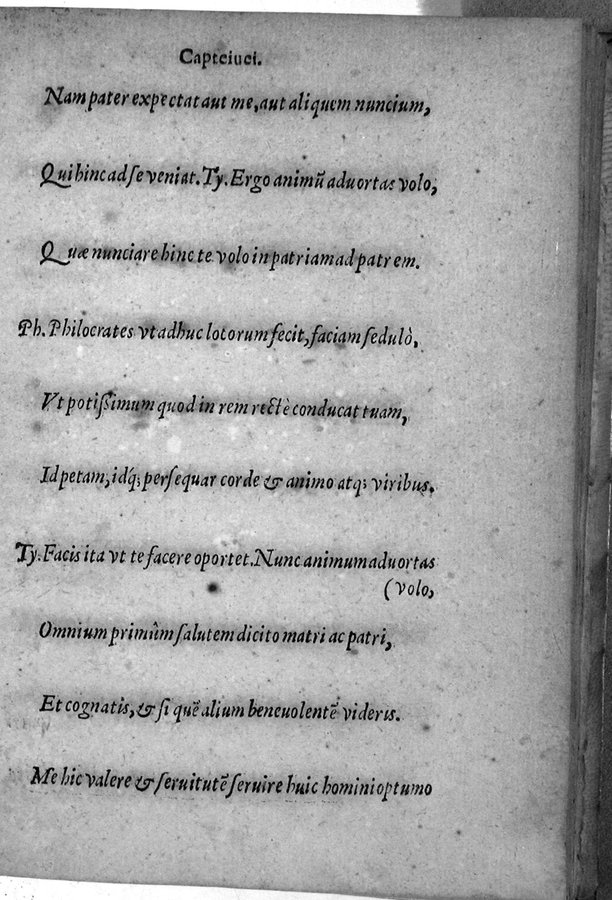 Capteiuei.
Nam pater expectat aut me, aut aliquem nuncium,
Qui hinc ad ſe veniat. Ty. Ergo animũ aduortas volo,
Quæ nunciare hinc te volo in patriam ad patrem.
Ph. Philocrates vt adhuc lotorum fecit, faciam ſedulò,
Vt potiſſimum quod in rem rectè conducat tuam,
Id petam, idq́; perſequar corde & animo atq; viribus.
Ty. Facis ita vt te facere oportet. Nunc animum aduortas
(volo,
Omnium primũm ſalutem dicito matri ac patri,
Et cognatis, & ſi quẽ alium beneuolentẽ videris.
Me hic valere & ſeruitutẽ ſeruire huic homini optumo